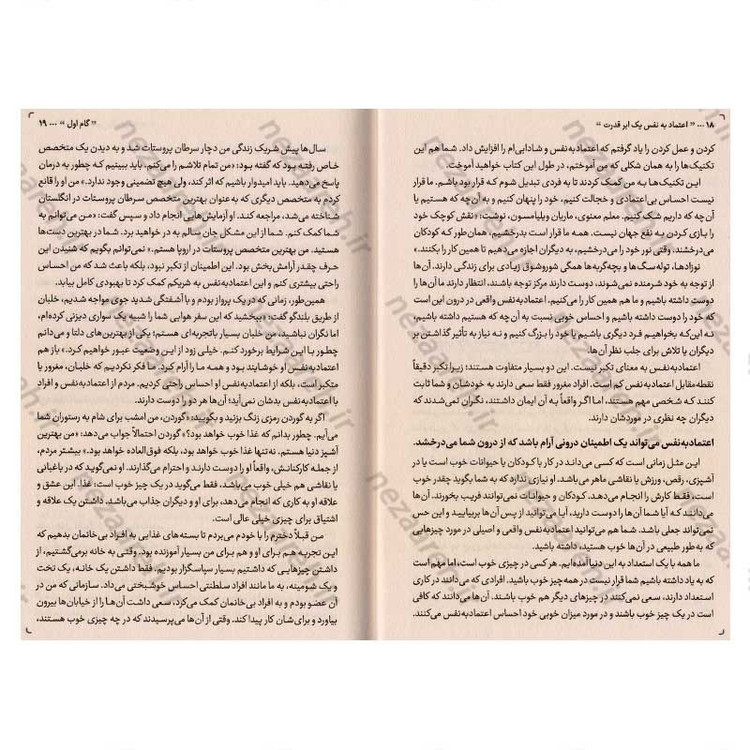 ۱۸ ... « اعتماد به نفس یک ابر قدرت »
کردن و عمل کردن را یاد گرفتم که اعتمادبه‌نفس و شادابی‌ام را افزایش داد. شما هم این
تکنیک‌ها را به همان شکلی که من آموختم، در طول این کتاب خواهید آموخت.
این تکنیک‌ها به من کمک کردند تا به فردی تبدیل شوم که قرار بود باشم. ما قرار
نیست احساس بی‌اعتمادی و خجالت کنیم، خود را پنهان کنیم و به آن چه که هستیم یا
آن چه که داریم شک کنیم. معلم معنوی، ماریان ویلیامسون، نوشت: «نقش کوچک خود
را بازی کردن به نفع جهان نیست. همه ما قرار است بدرخشیم، همان‌طور که کودکان
می‌درخشند. وقتی نور خود را می‌درخشیم، به دیگران اجازه می‌دهیم تا همین کار را بکنند.»
نوزادها، توله‌سگ‌ها و بچه‌گربه‌ها همگی شوروشوق زیادی برای زندگی دارند. آن‌ها
از توجه به خود شرمنده نمی‌شوند، دوست دارند مرکز توجه باشند. انتظار دارند ما آن‌ها را
دوست داشته باشیم و ما هم همین کار را می‌کنیم. اعتمادبه‌نفس واقعی در درون این است
که خود را دوست داشته باشیم و احساس خوبی نسبت به آن چه که هستیم داشته باشیم،
نه این‌که بخواهیم فرد دیگری باشیم یا خود را بزرگ کنیم و نه نیاز به تأثیر گذاشتن بر
دیگران یا تلاش برای جلب نظر آن‌ها.
اعتمادبه‌نفس به معنای تکبر نیست. این دو بسیار متفاوت هستند؛ زیرا تکبر دقیقاً
نقطه‌مقابل اعتمادبه‌نفس است. افراد مغرور فقط سعی دارند به خودشان و شما ثابت
کنند که شخصی مهم هستند، اما اگر واقعاً به آن ایمان داشتند، نگران نمی‌شدند که
دیگران چه نظری در موردشان دارند.
اعتمادبه‌نفس می‌تواند یک اطمینان درونی آرام باشد که از درون شما می‌درخشد.
این مثل زمانی است که کسی می‌داند در کار با کودکان یا حیوانات خوب است یا در
آشپزی، رقص، ورزش یا نقاشی ماهر می‌باشد. او نیازی ندارد که به شما بگوید چقدر خوب
است، فقط کارش را انجام می‌دهد. کودکان و حیوانات نمی‌توانند فریب بخورند. آن‌ها
می‌دانند که آیا شما آن‌ها را دوست دارید، آیا می‌توانید از پس آن‌ها بربیایید و این حس
نمی‌تواند جعلی باشد. شما هم می‌توانید اعتمادبه‌نفس واقعی و اصیلی در مورد چیزهایی
که به‌طور طبیعی در آن‌ها خوب هستید، داشته باشید.
ما همه با یک استعداد به این دنیا آمده‌ایم. هر کسی در چیزی خوب است، اما مهم است
که به یاد داشته باشیم شما قرار نیست در همه چیز خوب باشید. افرادی که می‌دانند در کاری
استعداد دارند، سعی نمی‌کنند در چیزهای دیگر هم خوب باشند. آن‌ها می‌دانند که کافی
است در یک چیز خوب باشند و در مورد میزان خوبی خود احساس اعتمادبه‌نفس می‌کنند.
« گام اول » ... ۱۹
سال‌ها پیش شریک زندگی من دچار سرطان پروستات شد و به دیدن یک متخصص
خاص رفته بود که گفته بود: «من تمام تلاشم را می‌کنم. باید ببینیم که چطور به درمان
پاسخ می‌دهید. باید امیدوار باشیم که اثر کند، ولی هیچ تضمینی وجود ندارد.» من او را قانع
کردم به متخصص دیگری که به‌عنوان بهترین متخصص سرطان پروستات در انگلستان
شناخته می‌شد، مراجعه کند. او آزمایش‌هایی انجام داد و سپس گفت: «من می‌توانم به
شما کمک کنم. شما از این مشکل جان سالم به در خواهید برد. شما در بهترین دست‌ها
هستید. من بهترین متخصص پروستات در اروپا هستم.» نمی‌توانم بگویم که شنیدن این
حرف چقدر آرامش‌بخش بود. این اطمینان از تکبر نبود، بلکه باعث شد که من احساس
راحتی بیشتری کنم و این اعتمادبه‌نفس به شریکم کمک کرد تا بهبودی کامل بیابد.
همین‌طور، زمانی که در یک پرواز بودم و با آشفتگی شدید جوی مواجه شدیم، خلبان
از طریق بلندگو گفت: «ببخشید که این سفر هوایی شما را شبیه یک سواری دیزنی کرده‌ام،
اما نگران نباشید، من خلبان بسیار باتجربه‌ای هستم؛ یکی از بهترین‌های دلتا و می‌دانم
چطور با این شرایط برخورد کنم. خیلی زود از این وضعیت عبور خواهیم کرد.» باز هم
اعتمادبه‌نفس او خوشایند بود و همه ما را آرام کرد. ما فکر نکردیم که خلبان، مغرور یا
متکبر است، بلکه از اعتمادبه‌نفس او احساس راحتی کردیم. مردم از اعتمادبه‌نفس و افراد
بااعتمادبه‌نفس خوششان می‌آید؛ آن‌ها هر دو را دوست دارند.
اگر به گوردن رمزی زنگ بزنید و بگویید: «گوردن، من امشب برای شام به رستوران شما
می‌آیم. چطور بدانم که غذا خوب خواهد بود؟» گوردن احتمالاً جواب می‌دهد: «من بهترین
آشپز دنیا هستم. نه‌تنها غذا خوب خواهد بود، بلکه فوق‌العاده خواهد بود.» بیشتر مردم،
از جمله کارکنانش، واقعاً او را دوست دارند و احترام می‌گذارند. او نمی‌گوید که در باغبانی
یا نقاشی هم خیلی خوب می‌باشد، فقط می‌گوید در یک چیز خوب است: غذا. این عشق و
علاقه او به کاری که انجام می‌دهد، برای او و دیگران جذاب می‌باشد. داشتن یک علاقه و
اشتیاق برای چیزی خیلی عالی است.
من قبلاً دخترم را با خودم می‌بردم تا بسته‌های غذایی به افراد بی‌خانمان بدهیم که
این تجربه هم برای او و هم برای من بسیار آموزنده بود. وقتی به خانه برمی‌گشتیم، از
داشتن چیزهایی که داشتیم بسیار سپاسگزار بودیم. فقط داشتن یک خانه، یک تخت
و یک شومینه، به ما مانند افراد سلطنتی احساس خوشبختی می‌داد. سازمانی که من در
آن عضو بودم و به افراد بی‌خانمان کمک می‌کرد، سعی داشت آن‌ها را از خیابان‌ها بیرون
بیاورد و برای‌شان کار پیدا کند. وقتی از آن‌ها می‌پرسیدند که در چه چیزی خوب هستند،